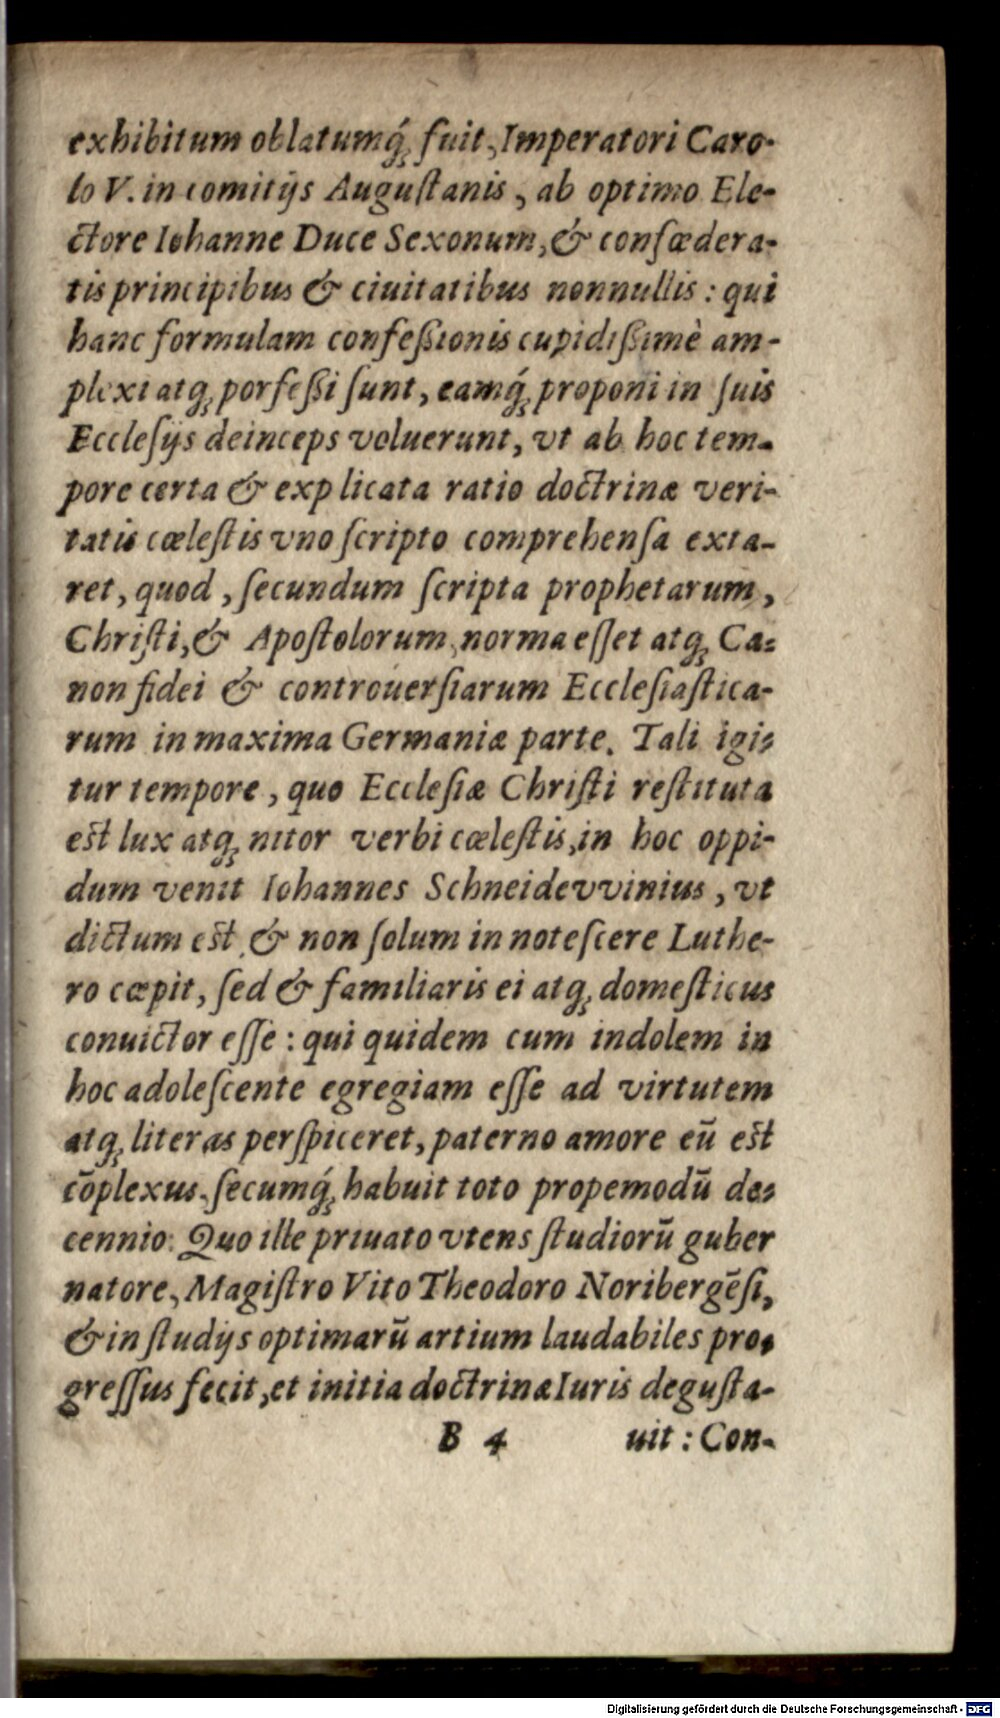 exhibitum oblatumq́ꝫ fuit, Imperatori Caro-
lo V. in comitijs Auguſtanis, ab optimo Ele-
ctore Iohanne Duce Sexonum, & conſœdera-
tis principibus & ciuitatibus nonnullis: qui
hanc formulam confeßionis cupidißimè am-
plexi atqꝫ porfeßi ſunt, eamq́ꝫ proponi in ſuis
Eccleſijs deinceps voluerunt, vt ab hoc tem-
pore certa & explicata ratio doctrinæ veri-
tatis cœleſtis vno ſcripto comprehenſa exta-
ret, quod, ſecundum ſcripta prophetarum,
Chriſti, & Apoſtolorum, norma eſſet atqꝫ Ca-
non fidei & controuerſiarum Eccleſiaſtica-
rum in maxima Germaniæ parte. Tali igi-
tur tempore, quo Eccleſiæ Chriſti reſtituta
eſt lux atqꝫ nitor verbi cœleſtis, in hoc oppi-
dum venit Iohannes Schneidevvinius, vt
dictum eſt, & non ſolum innoteſcere Luthe-
ro cœpit, ſed & familiaris ei atqꝫ domeſticus
conuictor eſſe: qui quidem cum indolem in
hoc adoleſcente egregiam eſſe ad virtutem
atqꝫ literas perſpiceret, paterno amore eū eſt
cōplexus, ſecumq́ꝫ habuit toto propemodū de-
cennio: Quo ille priuato vtens ſtudiorū guber
natore, Magiſtro Vito Theodoro Noribergēſi,
& in ſtudijs optimarū artium laudabiles pro-
greſſus fecit, et initia doctrinæ Iuris deguſta-
B 4 uit: Con-
Digitalisierung gefördert durch die Deutsche Forschungsgemeinschaft - DFG